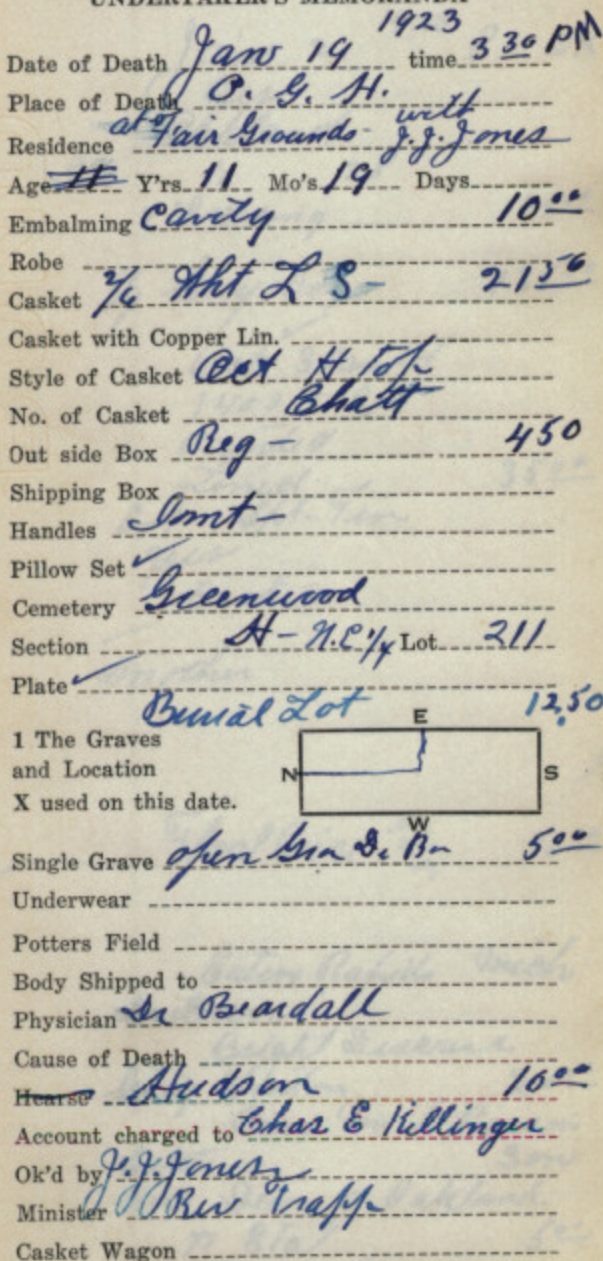 UNDERTAKER'S MEMORANDA
1923
Date of Death Jan 19 time 3 30 PM
Place of Death O. G. H.
Residence at Fair Grounds - with J. J. Jones
Age Y'rs. 11 Mo's. 19 Days
Embalming Cavity 10 00
Robe
Casket 2/6 Wht L S - 21 50
Casket with Copper Lin.
Style of Casket Oct H Top
No. of Casket Chatt
Out side Box Reg - 4 50
Shipping Box
Handles
Pillow Set ✓
Cemetery Greenwood
Section H - N.E. 1/4 Lot 211
Plate ✓
Burial Lot 12.50
1 The Graves
and Location
X used on this date.
E
N S
W
Single Grave open 5 00
Underwear
Potters Field
Body Shipped to
Physician Dr Beardall
Cause of Death
Hearse Hudson 10 00
Account charged to Chas E Killinger
Ok'd by J. J. Jones
Minister Rev Trapp
Casket Wagon